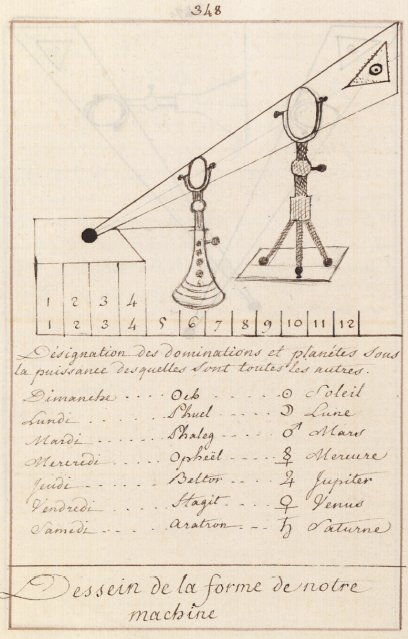 348
1 2 3 4
1 2 3 4 5 6 7 8 9 10 11 12
Désignation des dominations et planétes sous
la puissance desquelles sont toutes les autres.
Dimanche .... Och .... ☉ Soleil
Lundi .... Phuel .... ☽ Lune
Mardi .... Phaleg .... ♂ Mars
Mercredi .... Opheel .... ☿ Mercure
Jeudi .... Beltor .... ♃ Jupiter
Vendredi .... Stagit .... ♀ Venus
Samedi .... Aratron .... ♄ Saturne
Dessein de la forme de notre
machine